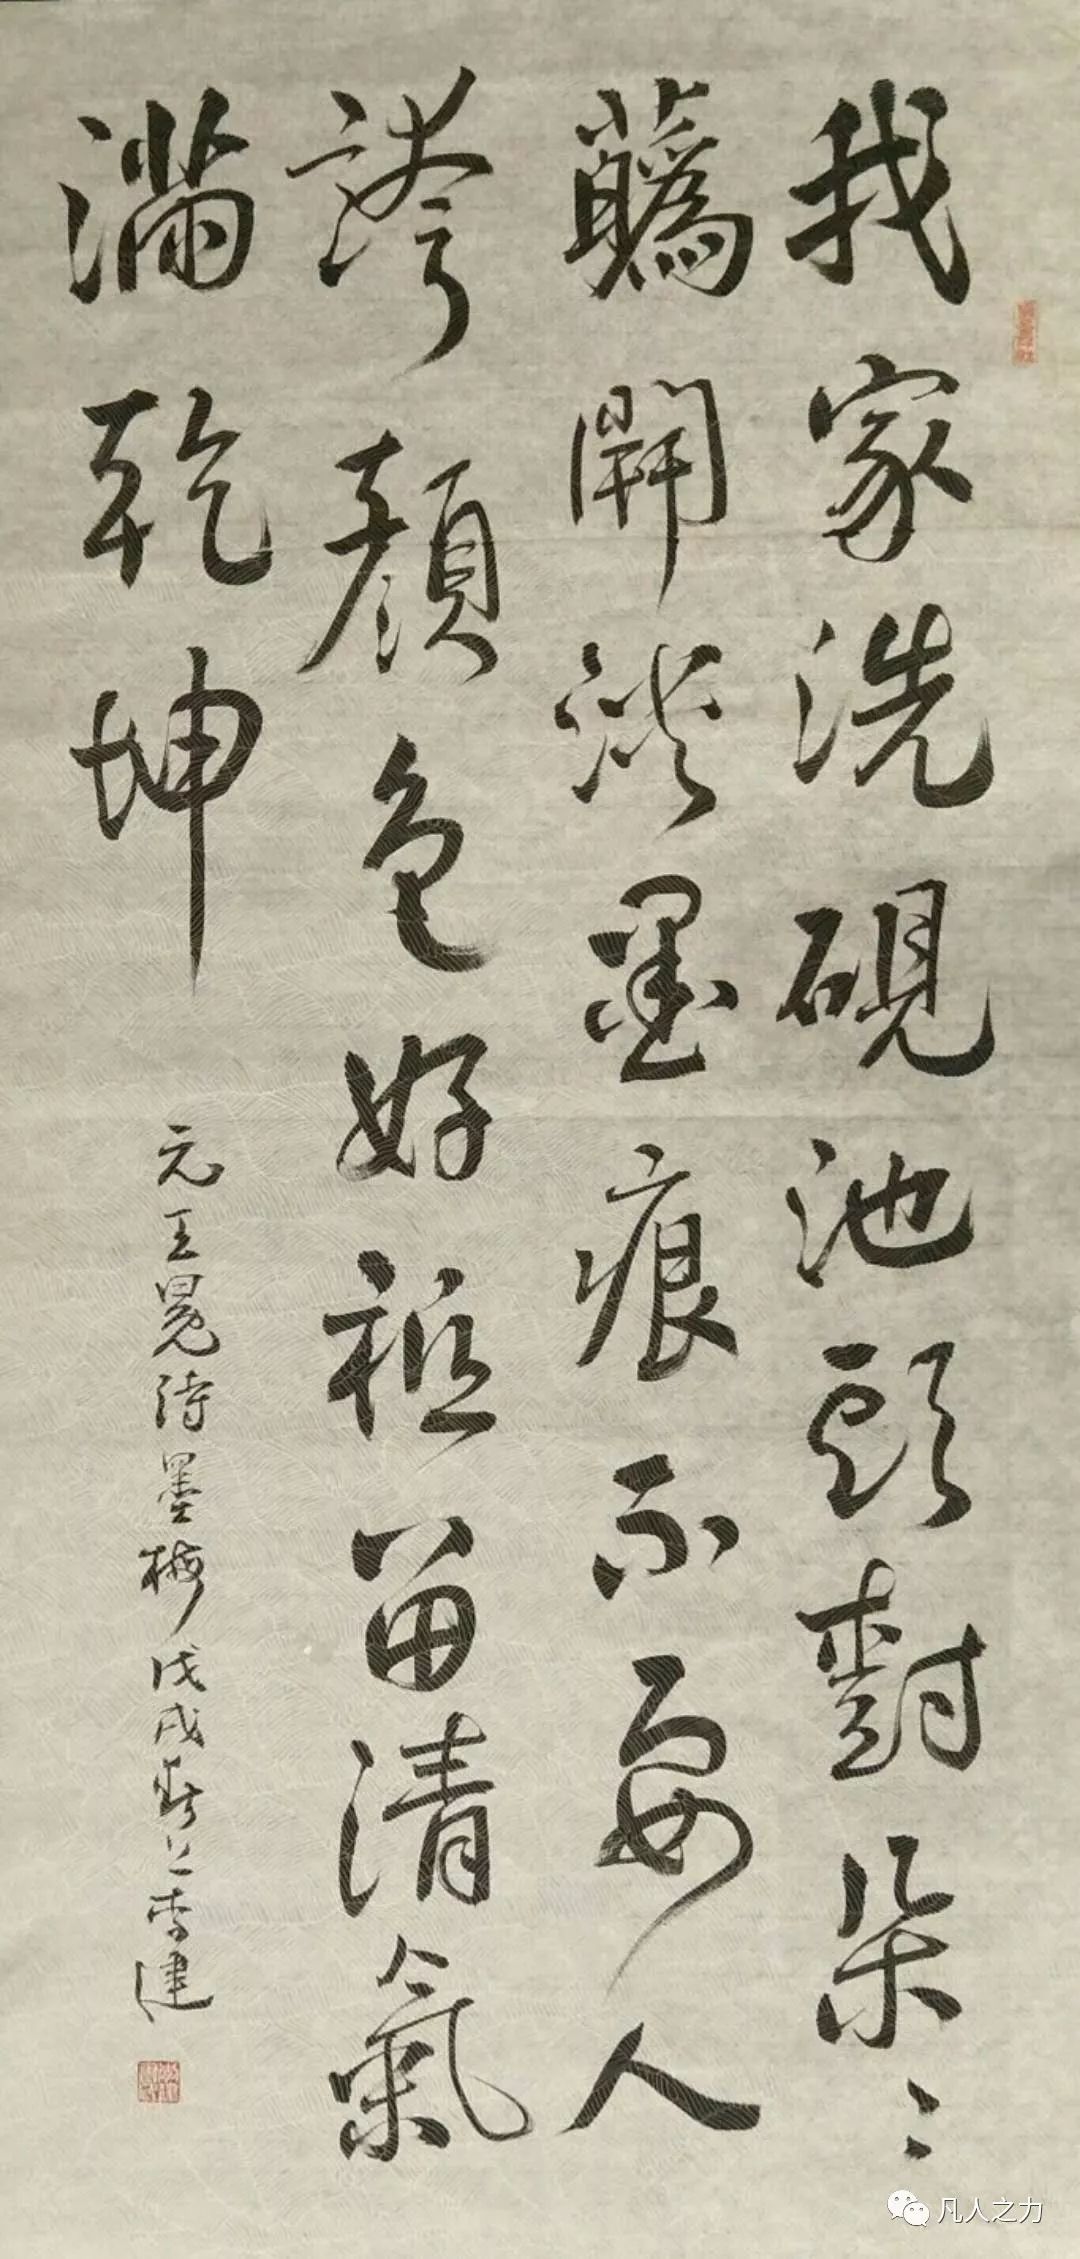 我家洗硯池頭對朵〻
蘤開淡墨痕不要人
誇顏色好祗留清氣
滿乾坤
元王冕詩墨梅戊戌春李建
凡人之力